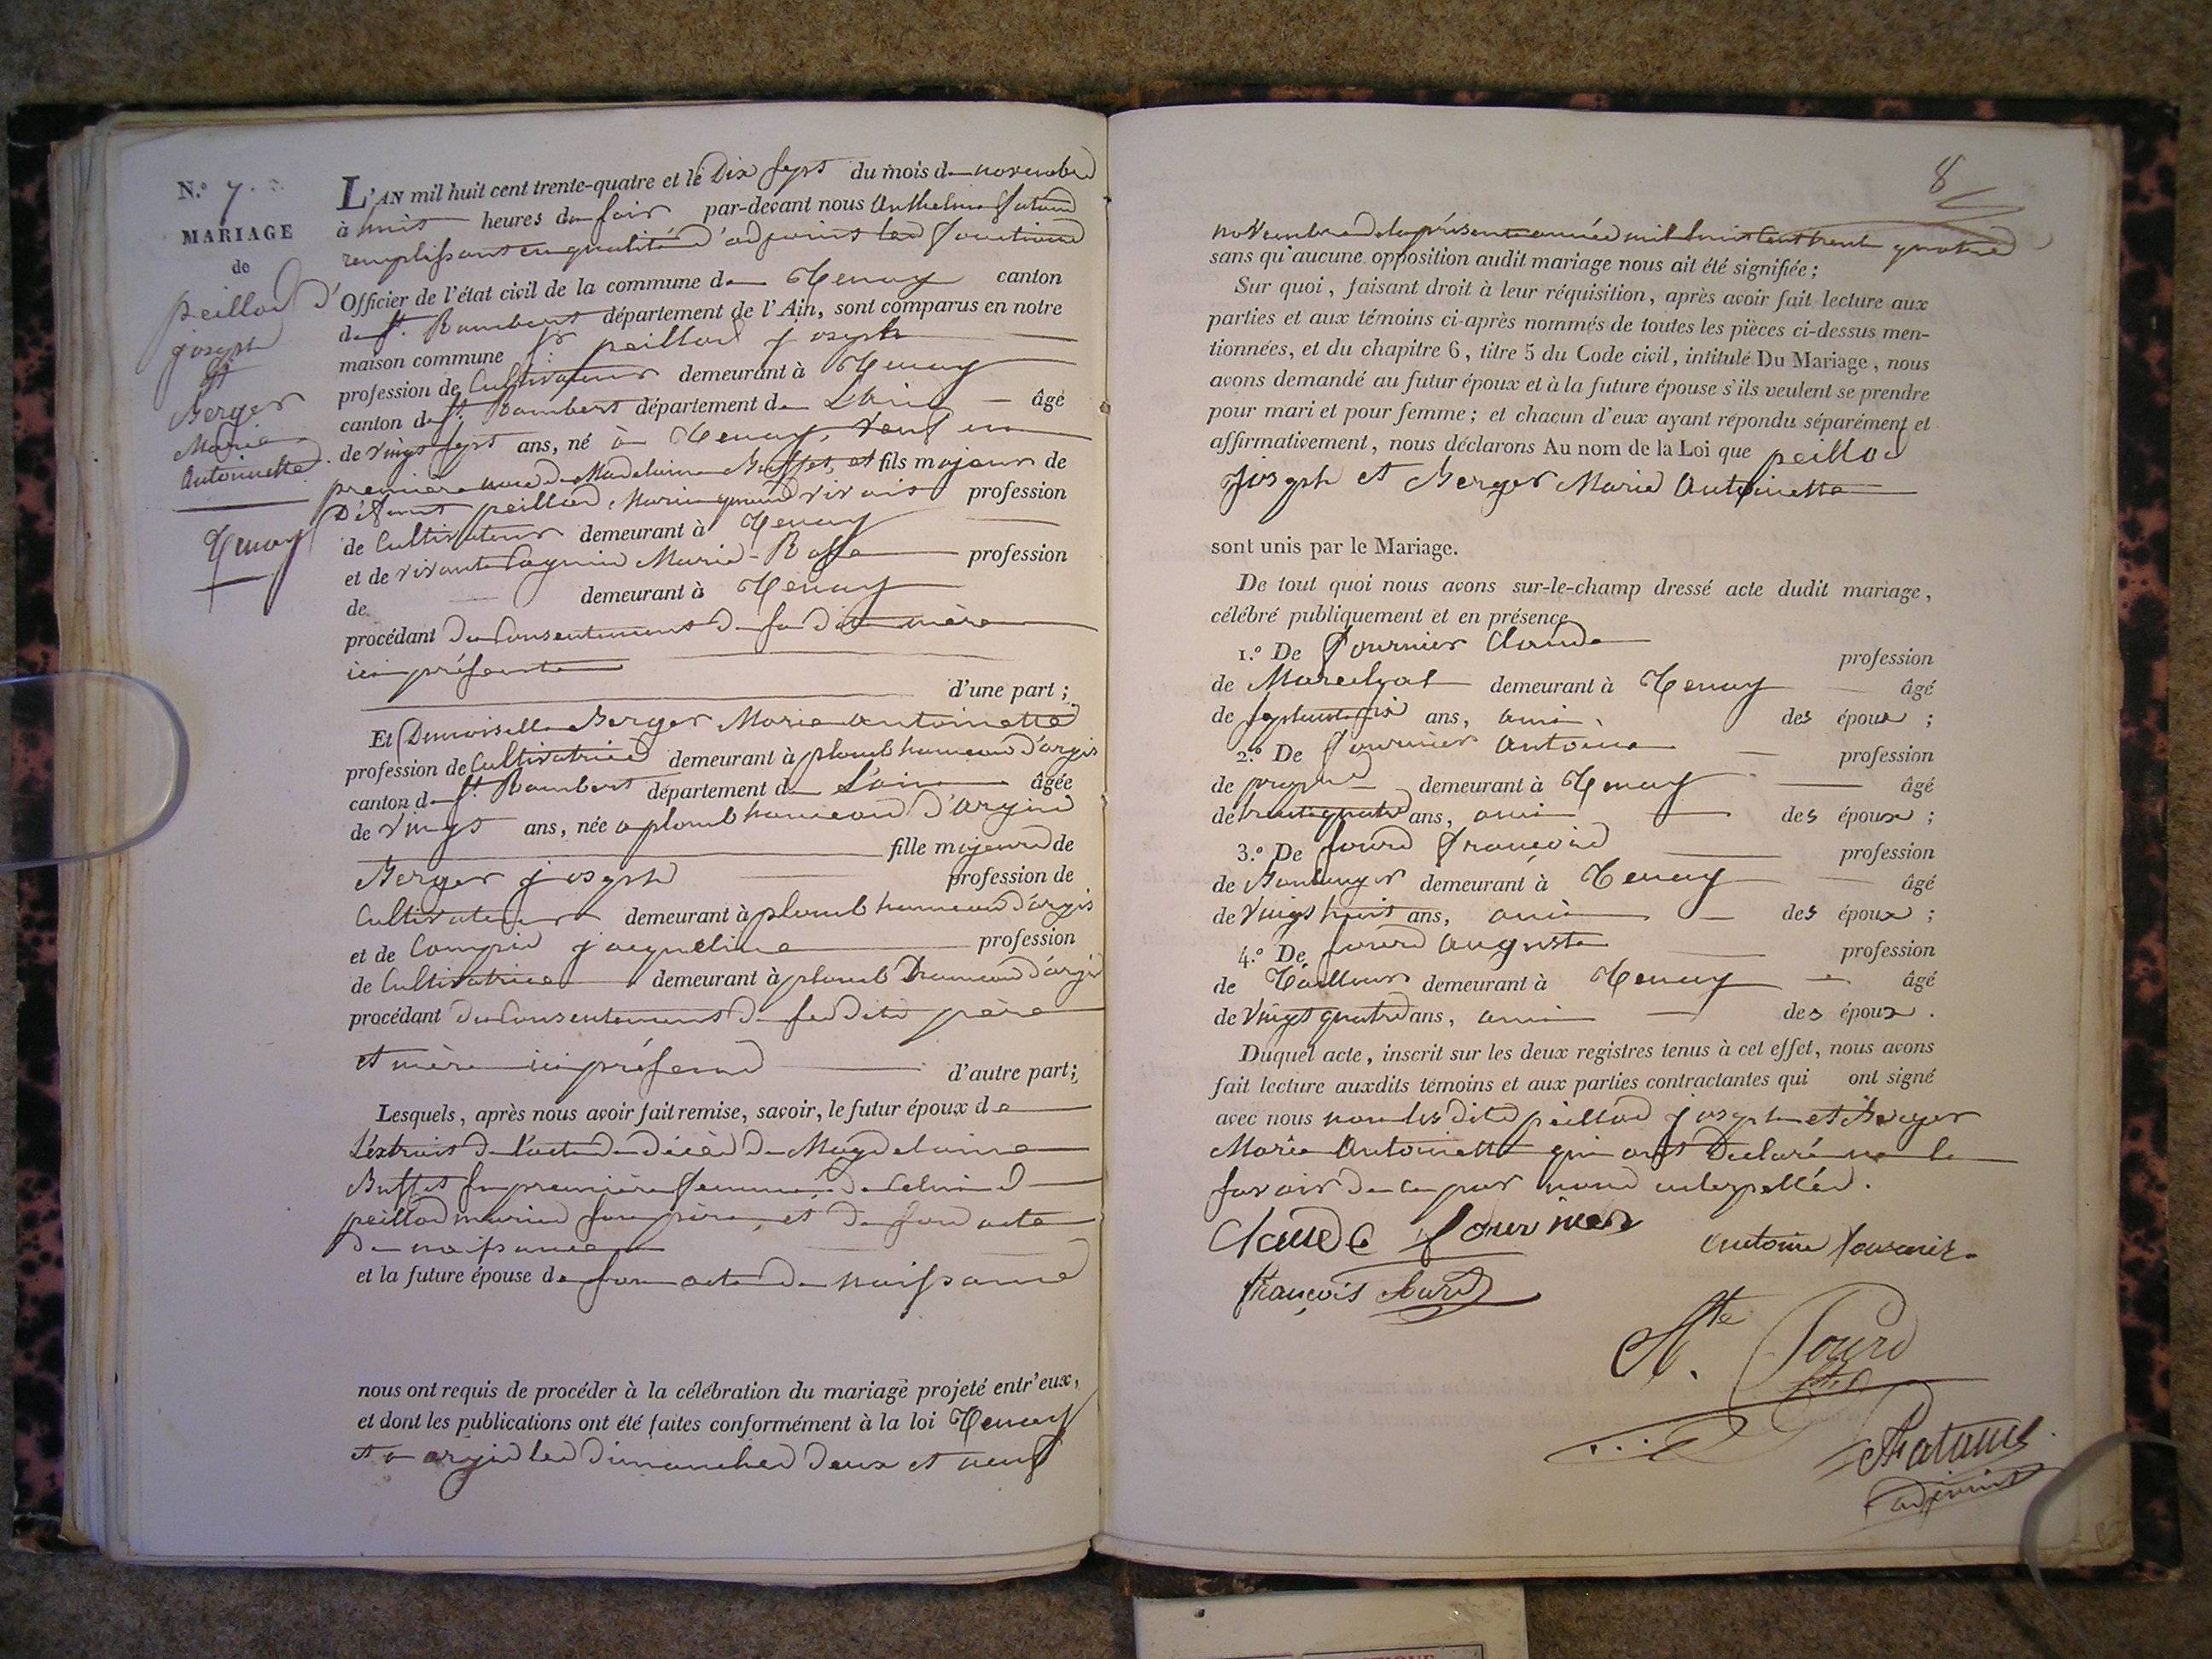 N.º 7.
MARIAGE
de
peillod
joseph
et
Berger
Marie
Antoinette
Tenay
L'AN mil huit cent trente-quatre et le Dix sept du mois de novembre
à huit heures du soir par-devant nous Anthelme
remplissant en qualité d'adjoint les fonctions
d'Officier de l'état civil de la commune de Tenay canton
de St. Rambert département de l'Ain, sont comparus en notre
maison commune Sr. peillod joseph
profession de Cultivateur demeurant à Tenay
canton de St. Rambert département de L'ain âgé
de vingt sept ans, né à Tenay, veuf en
première noce de Madelaine Buffet, et fils majeur de
Défunt peillod Marin quand vivait profession
de Cultivateur demeurant à Tenay
et de vivante Marie-Rosse profession
de demeurant à Tenay
procédant du Consentement de sa dite mère
ici présente
d'une part;
Et Demoiselle Berger Marie antoinette
profession de Cultivatrice demeurant à plomb hameau d'argis
canton de St. Rambert département de L'ain âgée
de vingt ans, née a plomb hameau d'argis
fille majeure de
Berger joseph profession de
Cultivateur demeurant à plomb hameau d'argis
et de jacqueline profession
de Cultivatrice demeurant à plomb hameau d'argis
procédant du Consentement de ses dits père
et mère ici présens d'autre part;
Lesquels, après nous avoir fait remise, savoir, le futur époux de
L'éxtrait de l'acte de décès de Magdelaine
Buffet sa première femme, de Celui de
peillod marin son père, et de son acte
de naissance
et la future épouse de son acte de naissance
nous ont requis de procéder à la célébration du mariage projeté entr'eux,
et dont les publications ont été faites conformément à la loi Tenay
et a argis les dimanches deux et neuf
8
novembre de la présente année mil huit Cent trente quatre
sans qu'aucune opposition audit mariage nous ait été signifiée;
Sur quoi, faisant droit à leur réquisition, après avoir fait lecture aux
parties et aux témoins ci-après nommés de toutes les pièces ci-dessus men-
tionnées, et du chapitre 6, titre 5 du Code civil, intitulé Du Mariage, nous
avons demandé au futur époux et à la future épouse s'ils veulent se prendre
pour mari et pour femme; et chacun d'eux ayant répondu séparément et
affirmativement, nous déclarons Au nom de la Loi que peillod
joseph et Berger Marie Antoinette
sont unis par le Mariage.
De tout quoi nous avons sur-le-champ dressé acte dudit mariage,
célébré publiquement et en présence
1.º De fournier Claude profession
de Marechal demeurant à Tenay âgé
de ans, ami des époux;
2.º De fournier Antoine profession
de demeurant à Tenay âgé
de trente quatre ans, ami des époux;
3.º De François profession
de Boulanger demeurant à Tenay âgé
de vingt huit ans, ami des époux;
4.º De auguste profession
de Tailleur demeurant à Tenay âgé
de vingt quatre ans, ami des époux.
Duquel acte, inscrit sur les deux registres tenus à cet effet, nous avons
fait lecture auxdits témoins et aux parties contractantes qui ont signé
avec nous non les dits peillod joseph et Berger
Marie Antoinette qui ont Declaré ne le
savoir de ce par nous interpellés.
Claude fournier
antoine
françois
adjoint